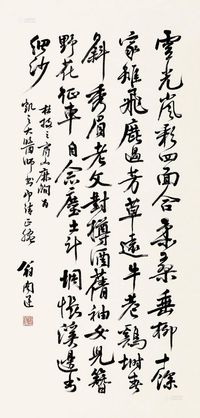 雲光嵐彩四面合柔柔垂柳十餘
家雉飛鹿過芳草遠牛巷鷄塒春
斜秀眉老父對樽酒蒨袖女兒簪
野花征車自念塵土計惆悵溪邊書
細沙
杜牧之商山麻澗
大醫師
翁闓運